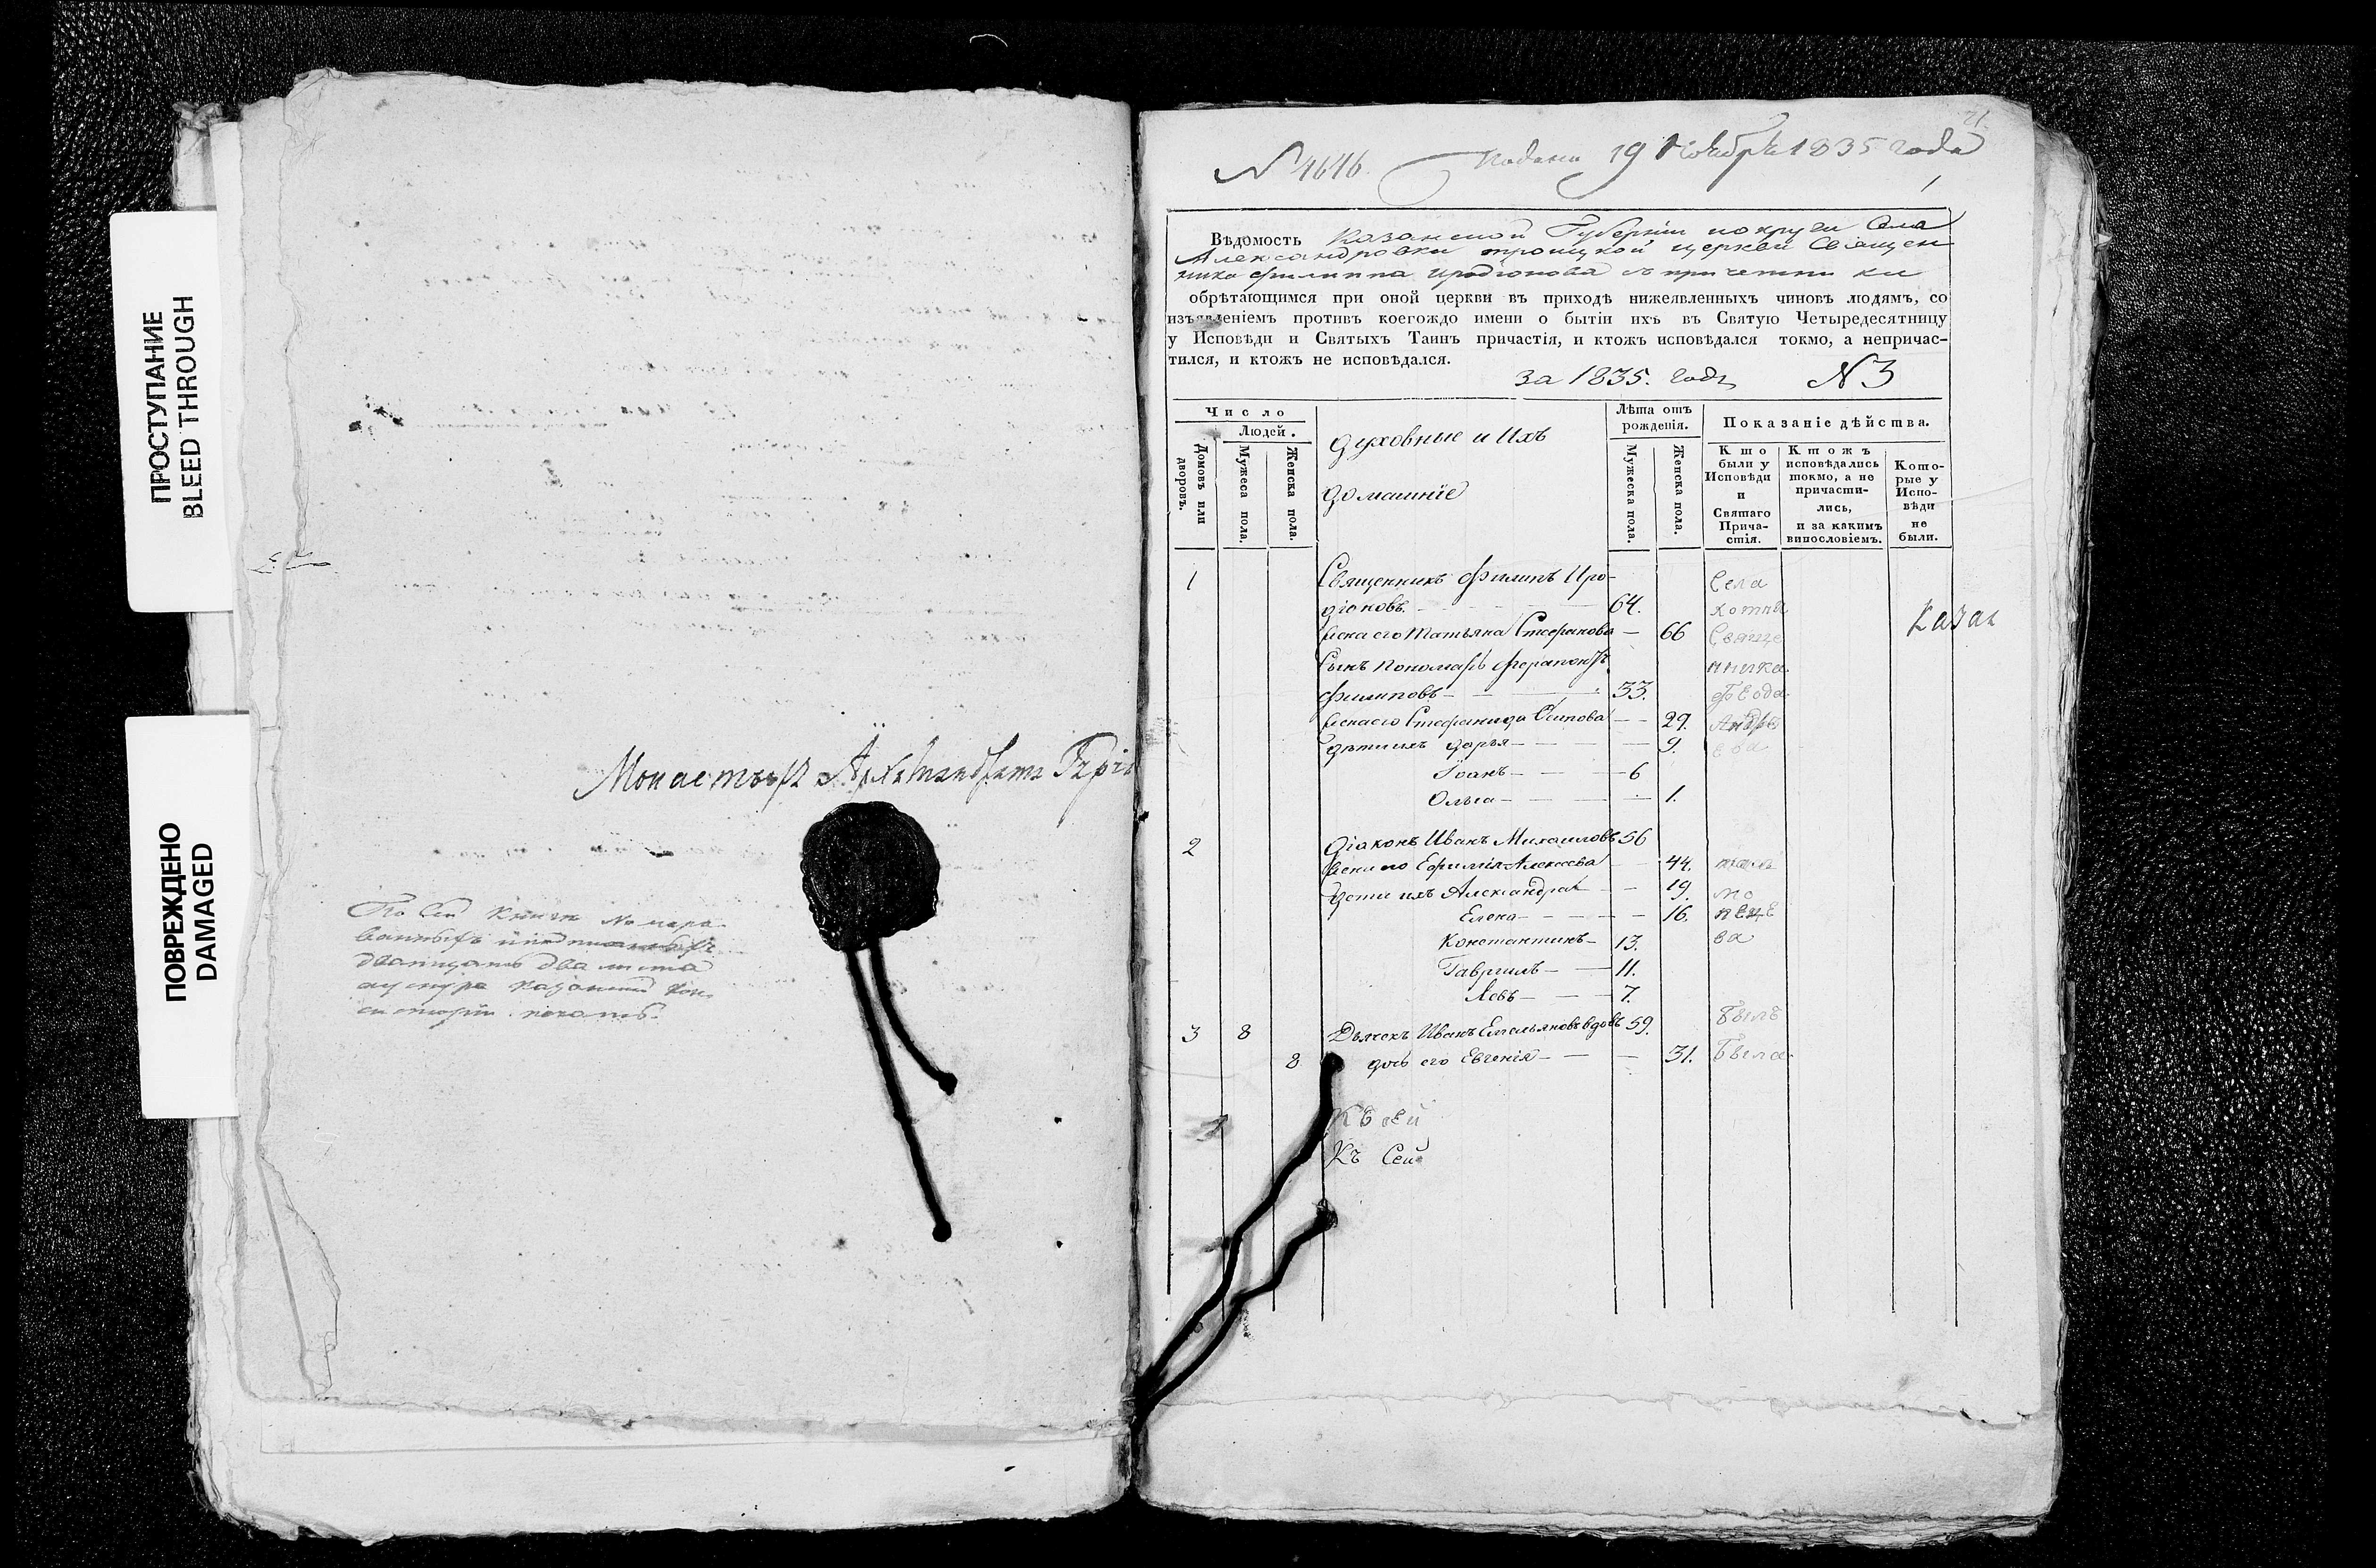 ПРОСТУПАНИЕ
BLEED THROUGH
ПОВРЕЖДЕНО
DAMAGED
Монастырь Архимандритъ Гаврі
По сей книги номеро
дватцать два листа
печать.
21.
N 4646.
Подана 19 Ноября 1835 года
Вѣдомость Казанской Губерніи Села
Александровки троицкой церкви Священ
ника Филиппа Иродіонова съ причетники
обрѣтающимся при оной церкви въ приходѣ нижеявленныхъ чиновъ людямъ, со
изъявленіемъ противъ коегождо имени о бытіи ихъ въ Святую Четыредесятницу
у Исповѣди и Святыхъ Таинъ причастія, и ктожъ исповѣдался токмо, а непричас-
тился, и ктожъ не исповѣдался.
за 1835. годъ N 3
Число
Людей.
Домовъ или дворовъ.
Мужеса пола.
Женска пола.
духовные и Ихъ
домашніе
Лѣта отъ рожденія.
Мужеска пола.
Женска пола.
Показаніе дѣйства.
Кто были у Исповѣди и Святаго Прича-стія.
Ктожъ исповѣдались токмо, а не причасти-лись, и за какимъ винословіемъ.
Кото-рые у Испо-вѣди не были.
1 Священникъ Филипъ Иро- Села
діоновъ. 64.
Казан
жена его Татьяна Стефанова 66 Свяще
Сынъ пономарь Ферапонтъ нника
Филиповъ 33. Ѳеодо
жена его Стефанида Осипова 29. Андре
дѣти ихъ Дарья 9. ева
Іоанъ 6
Ольга 1.
2 Діаконъ Иванъ Михаиловъ 56
жена его Ефимія Алексеева 44.
дети ихъ Александра 19. мо
Елена 16.
Константинъ 13. ва
Гаврилъ 11.
Левъ 7.
3 8 Дьячекъ Иванъ Емельяновъ вдовъ 59. былъ
8 дочь его Евгенія 31. Была
Къ сей
Къ Сей